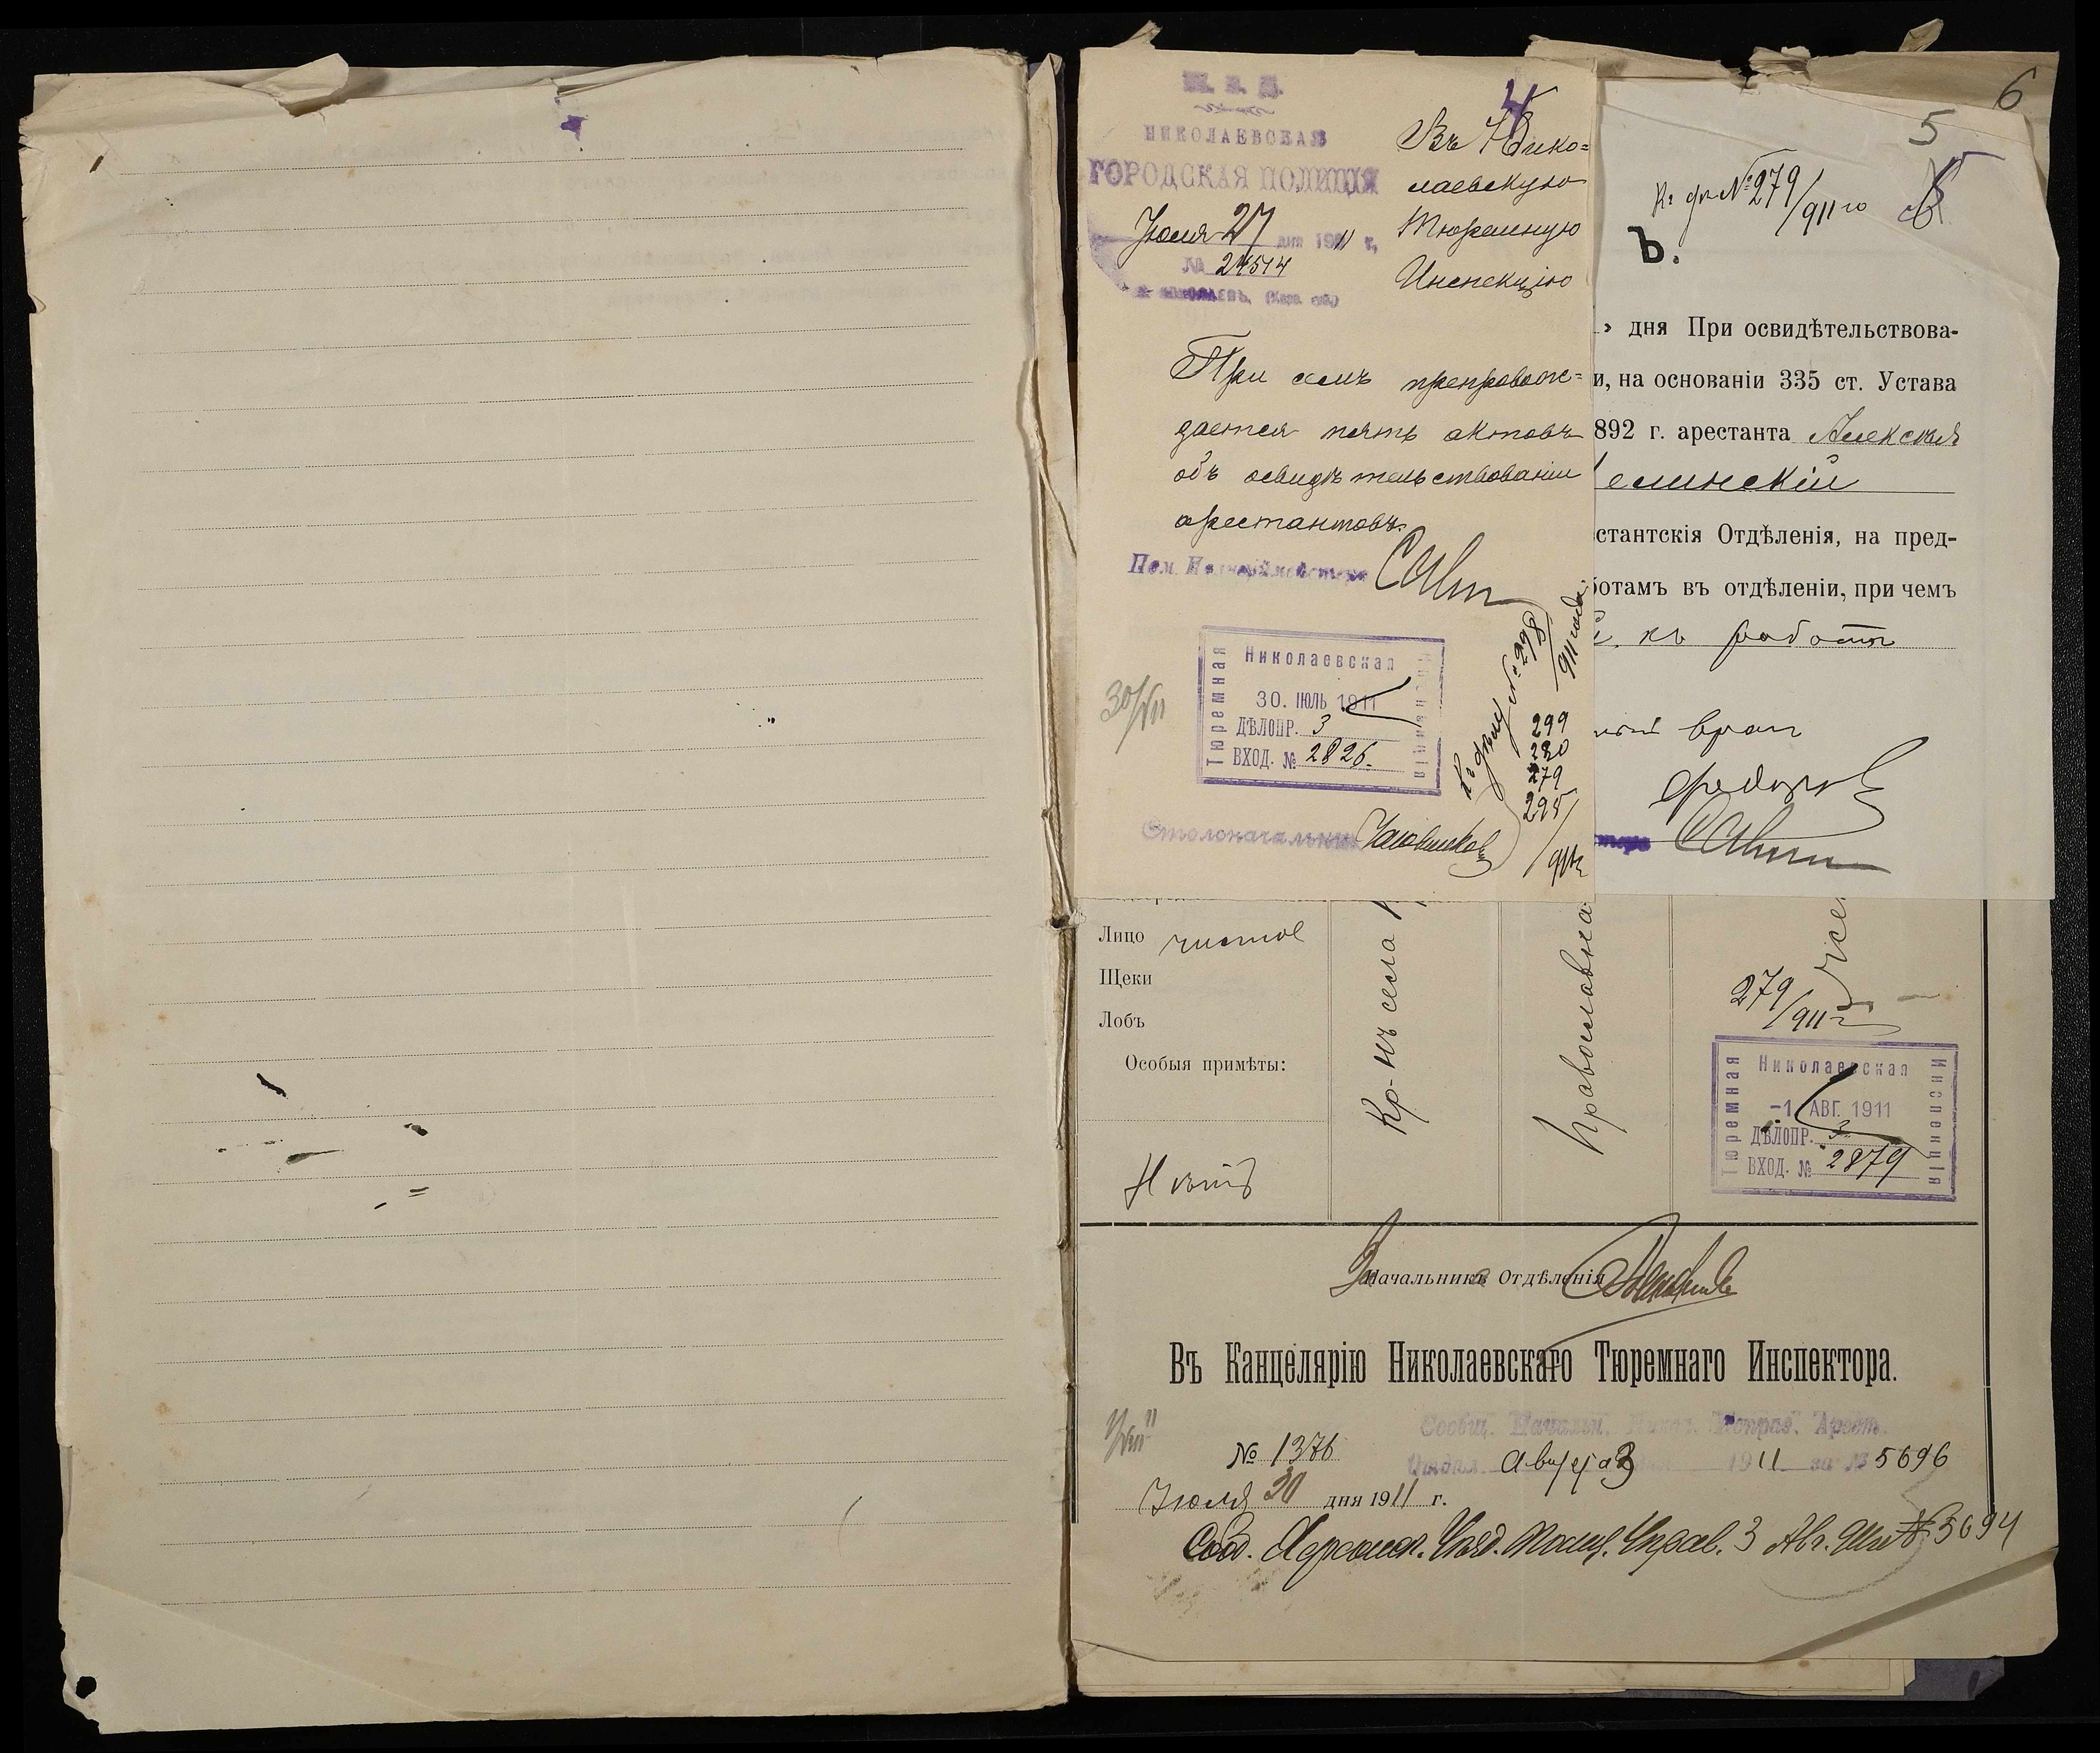 6
5
4
М. В. Д.
НИКОЛАЕВСКАЯ
ГОРОДСКАЯ ПОЛИЦІЯ
Іюля 27 дня 1911 г.,
№ 24514
г. НИКОЛАЕВЪ, (Херс. губ.)
Въ Нико=
лаевскую
Тюремную
Инспекцію
При семъ препровож=
дается пять актовъ
объ освидѣтельствованіи
арестантовъ.
Пом. Полицiймейстера
30/VII
Николаевская
Тюремная
Инспекція
30. ІЮЛЬ 1911
ДѢЛОПР. 3
ВХОД. № 2826.
Къ дѣлу № 298/911 года
299
280
279
295/911 г.
Столоначальникъ
Къ д. № 279/911 го
Ъ.
дня При освидѣтельствова-
и, на основаніи 335 ст. Устава
892 г. арестанта Алексѣя
елинскій
стантскія Отдѣленія, на пред-
ботамъ въ отдѣленіи, при чемъ
къ работѣ
врач
Федоров
Лицо чистое
Щеки
Лобъ
Особыя примѣты:
Нѣтъ
Кр-нъ села
Православна
279/911 г.
Николаевская
Тюремная
Инспекція
-1. АВГ. 1911
ДѢЛОПР. 3
ВХОД. № 2879
Начальникъ Отдѣленія
Въ Канцелярію Николаевскаго Тюремнаго Инспектора.
Сообщ. Начальн. Никол. Исправ. Арест.
№ 1376
Отдѣл. Августа 3 1911 за № 5696
Іюля 30 дня 1911 г.
Сооб. Херсонск. Уѣзд. Полиц. Управ. 3 Авг. 911 № 5694